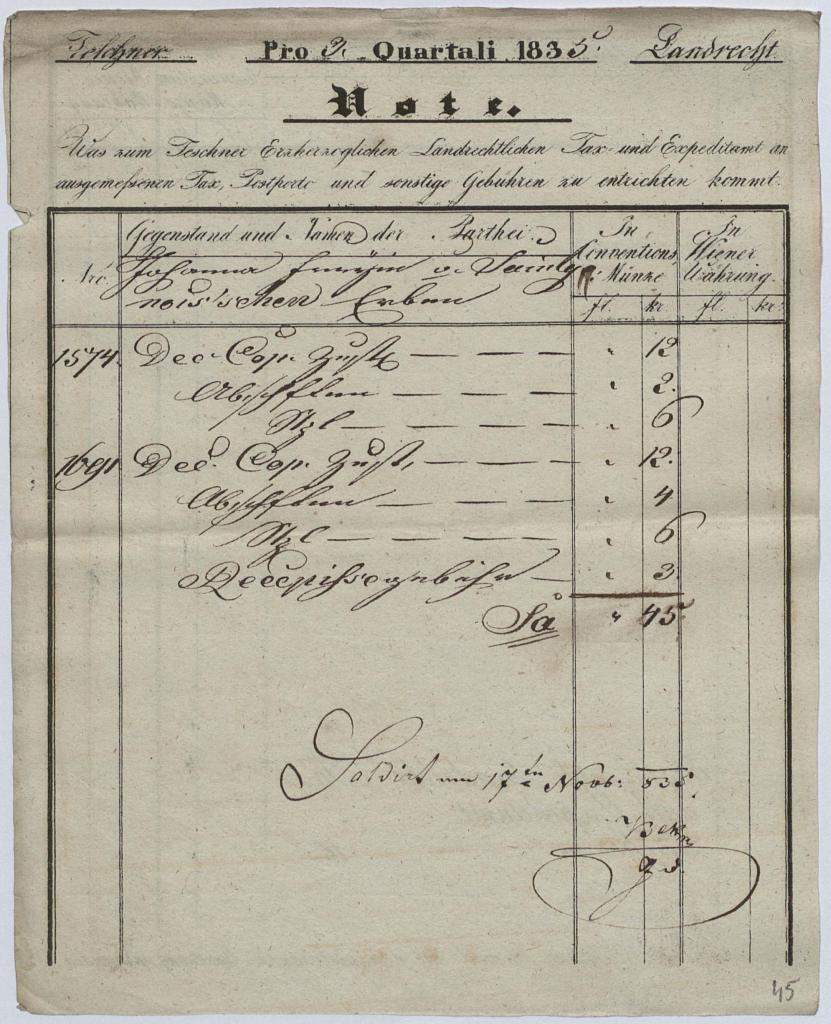 Teschner Pro 3. Quartali 1835. Landrecht
Note.
Was zum Teschner Erzherzoglichen Landrechtlichen Tax- und Expeditamt an
ausgemeßenen Tax, Postporto und sonstige Gebühren zu entrichten kommt.
Nro. Gegenstand und Namen der Parthei In Conventions Münze In Wiener Währung.
Johanna v. Saint
nois'schen Erben
fl. kr. fl. kr.
1574. Dec. Cop. Zust. — — — " 12
Abschften — — — — " 2.
Stzl — — — — " 6
1691 Dec. Cop. Zust. — — — " 12.
Abschften — — — — " 4
Stzl — — — — " 6
Recepissegebühr — " 3.
Sa " 45.
Soldirt am 17ten Novb: 835.
45